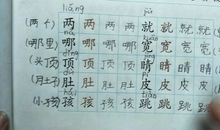 liǎng jù
(两千) 两 两 两 两 就 就 就 就
(哪里) 哪 哪 哪 哪 宽 宽 宽 宽
(头顶 顶 顶 顶 顶 睛 睛 睛 睛
(肚子) 肚 肚 肚 肚 皮 皮 皮 皮
(小孩 孩 孩 孩 孩 跳 跳 跳 跳